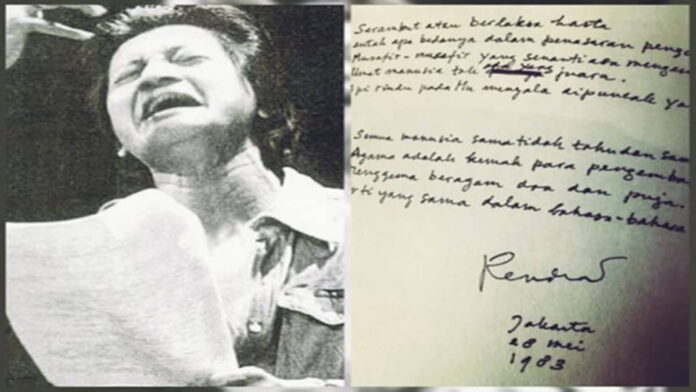 Serambut atau berlaksa hasta
entah apa bedanya dalam penasaran penge
Musafir-musafir yang senantiasa mengem
Umat manusia tak juara.
api rindu pada Mu menyala dipuncak ya
Semua manusia sama tidak tahu dan sama
Agama adalah kemah para pengemba
menggema beragam doa dan puja.
rti yang sama dalam bahasa-bahasa
Rendra
Jakarta
28 mei
1983